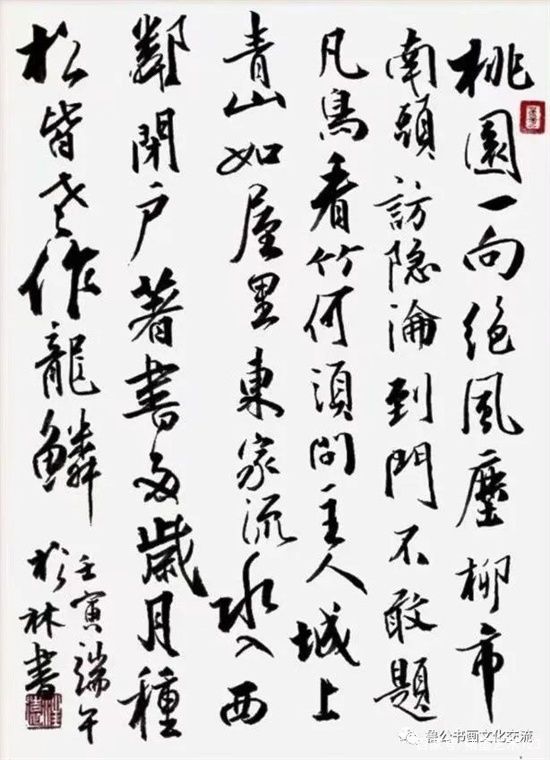 桃園一向絕風塵柳市
南頭訪隐淪到門不敢題
凡鳥看竹何須問主人城上
青山如屋里東家流水入西
鄰閉戶著書多歲月種
松皆老作龍鱗
壬寅端午
松林書
鲁公书画文化交流